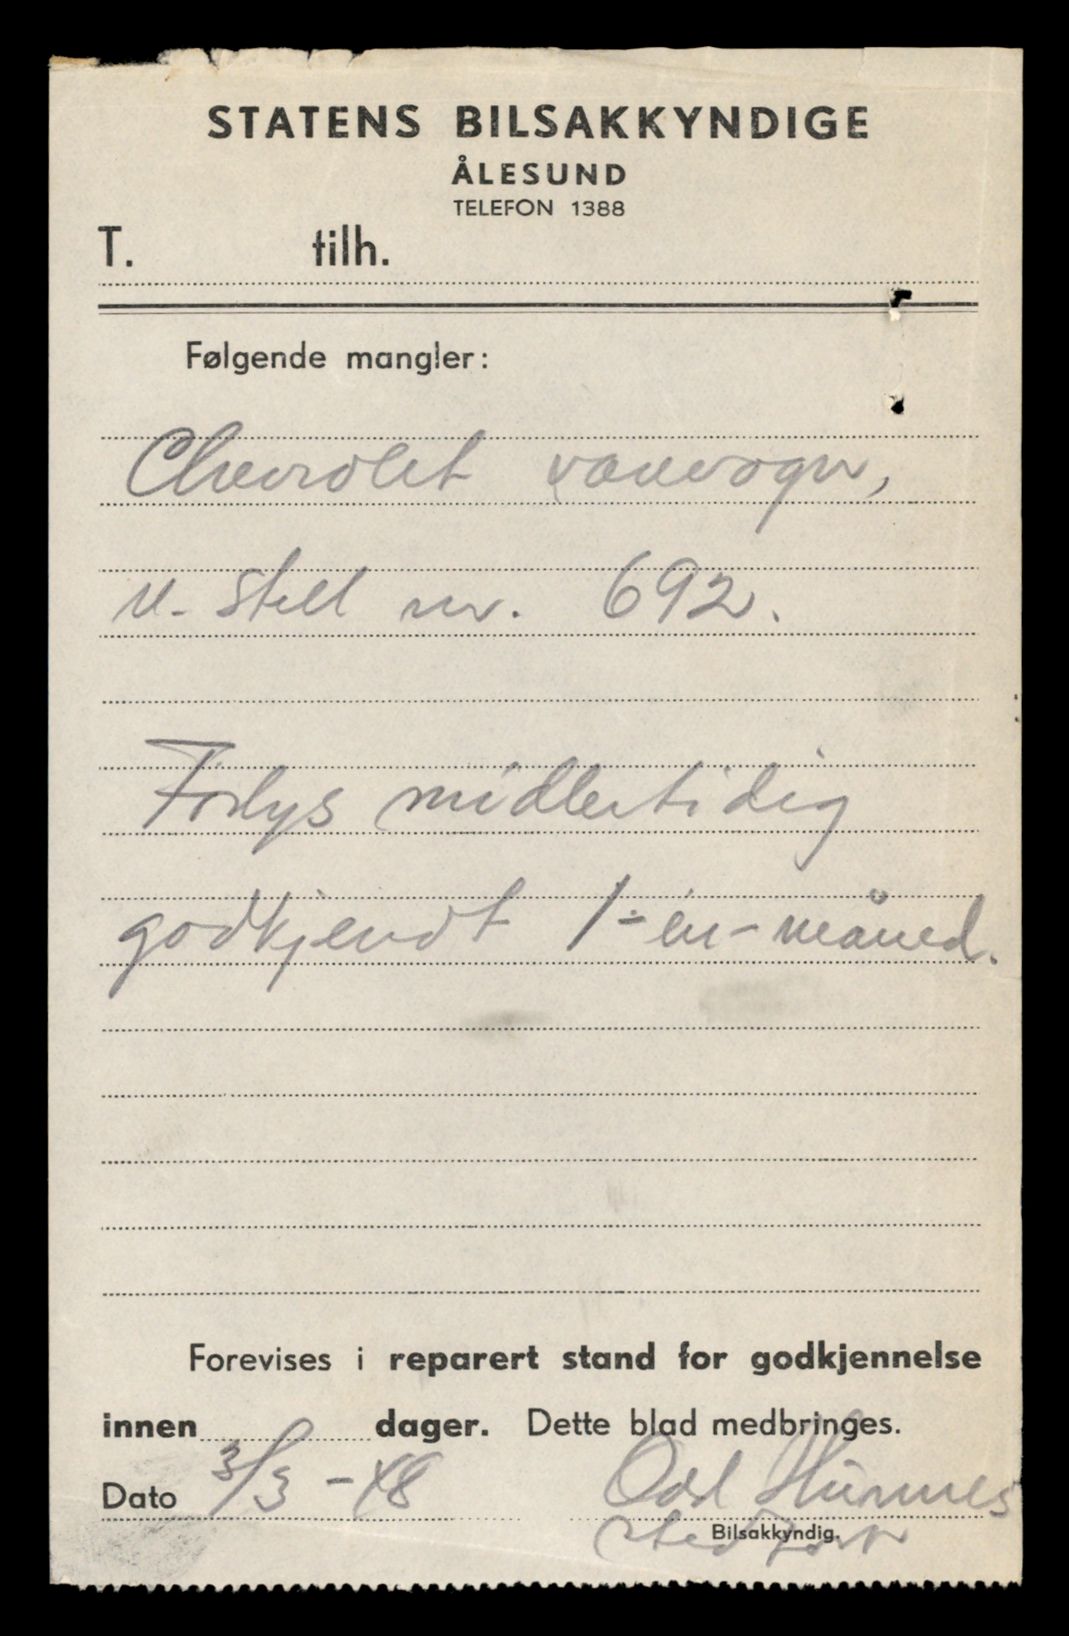 STATENS BILSAKKYNDIGE
ÅLESUND
TELEFON 1388
T. tilh.
Følgende mangler:
Chevrolet varevogn,
u. stell nr. 692.
Forlys midlertidig
godkjendt 1-én-måned.
Forevises i reparert stand for godkjennelse
innen dager. Dette blad medbringes.
Dato 3/3-48 Odd
Bilsakkyndig.